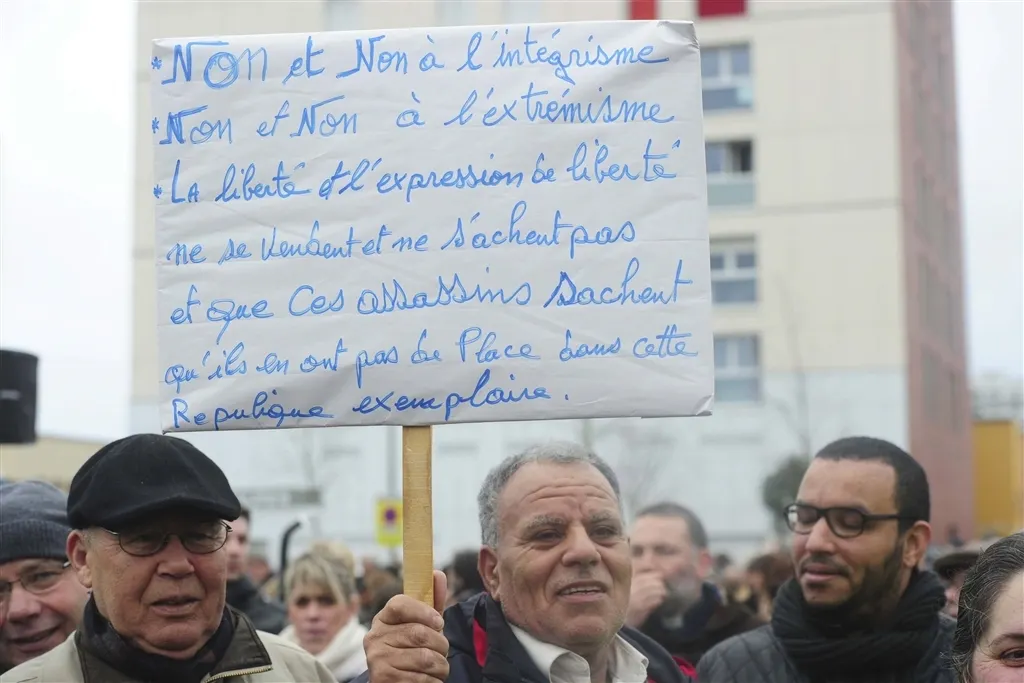 *NON et Non à l'intégrisme
*Non et Non à l'éxtrémisme
*LA liberté et l'expression de liberté
ne se vendent et ne s'achent pas
et que Ces assassins sachent
qu'ils en ont pas de Place dans cette
Republique exemplaire.